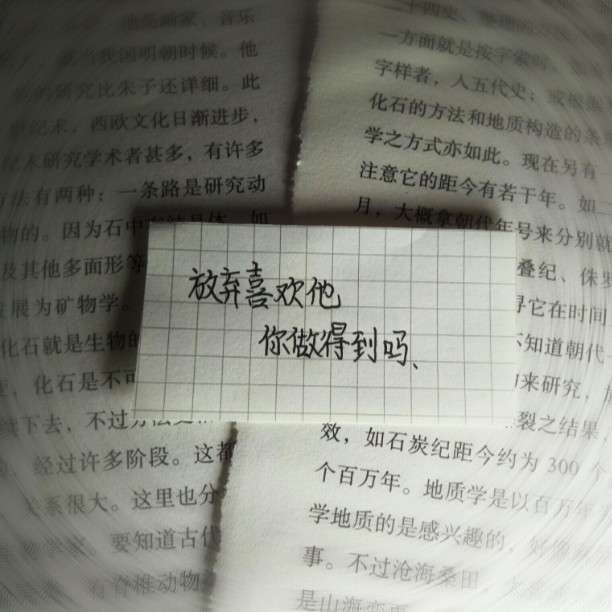 放弃喜欢他
你做得到吗、
音乐
当我国明朝时候。他
的研究比朱子还详细。此
西欧文化日渐进步，
研究学术者甚多，有许多
法有两种：一条路是研究动
物的。因为石中
及其他多面形等
发展为矿物学。
化石就是生物的
化石是不可
下去，不过
经过许多阶段。这都
关系很大。这里也分
要知道古代
有脊椎动物
一方面就是按字索
字样者，人五代史；或根据
化石的方法和地质构造的条
学之方式亦如此。现在另有
注意它的距今有若干年。如
月，大概拿朝代年号来分别就
叠纪、侏罗
寻它在时间
不知道朝代
来研究，
裂之结果
效，如石炭纪距今约为 300 个
个百万年。地质学是以百万年
学地质的是感兴趣的，好像
事。不过沧海桑田
是山海变